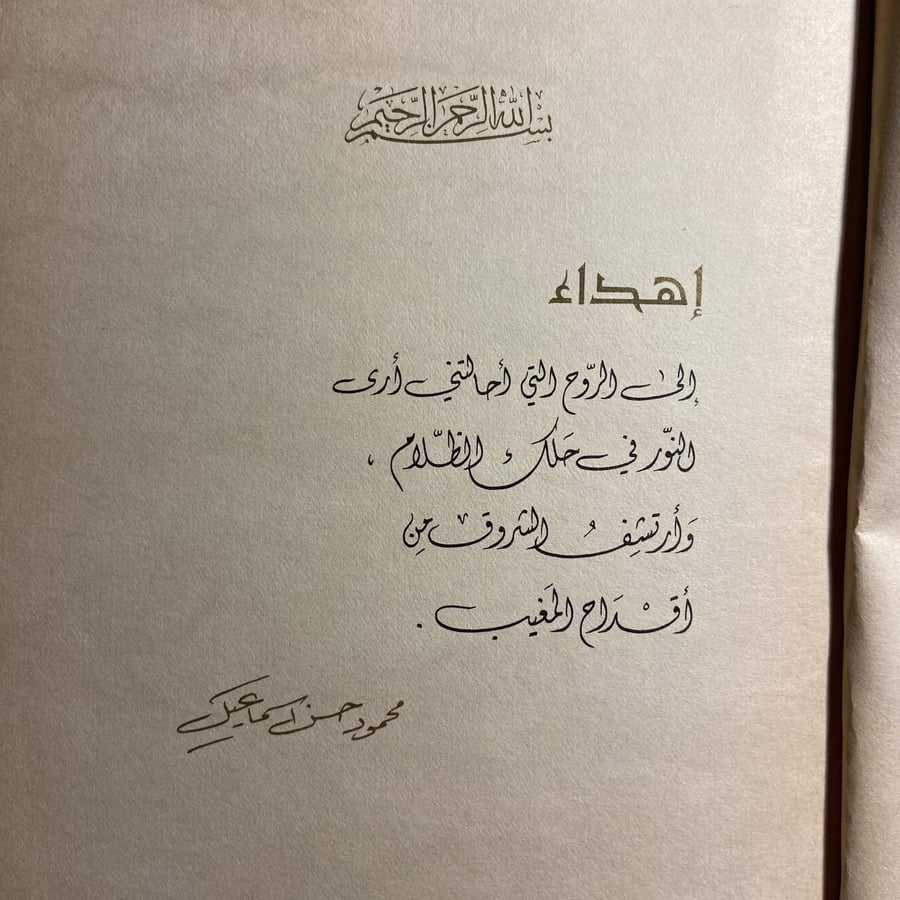 بسم الله الرحمن الرحيم
إهداء
إلى الرّوح التي أحالتني أرى
النّور في حَلك الظّلام ،
وَأرتشِفُ الشروق مِن
أقْدَاح المَغيب .
محمود حسن اسماعيل